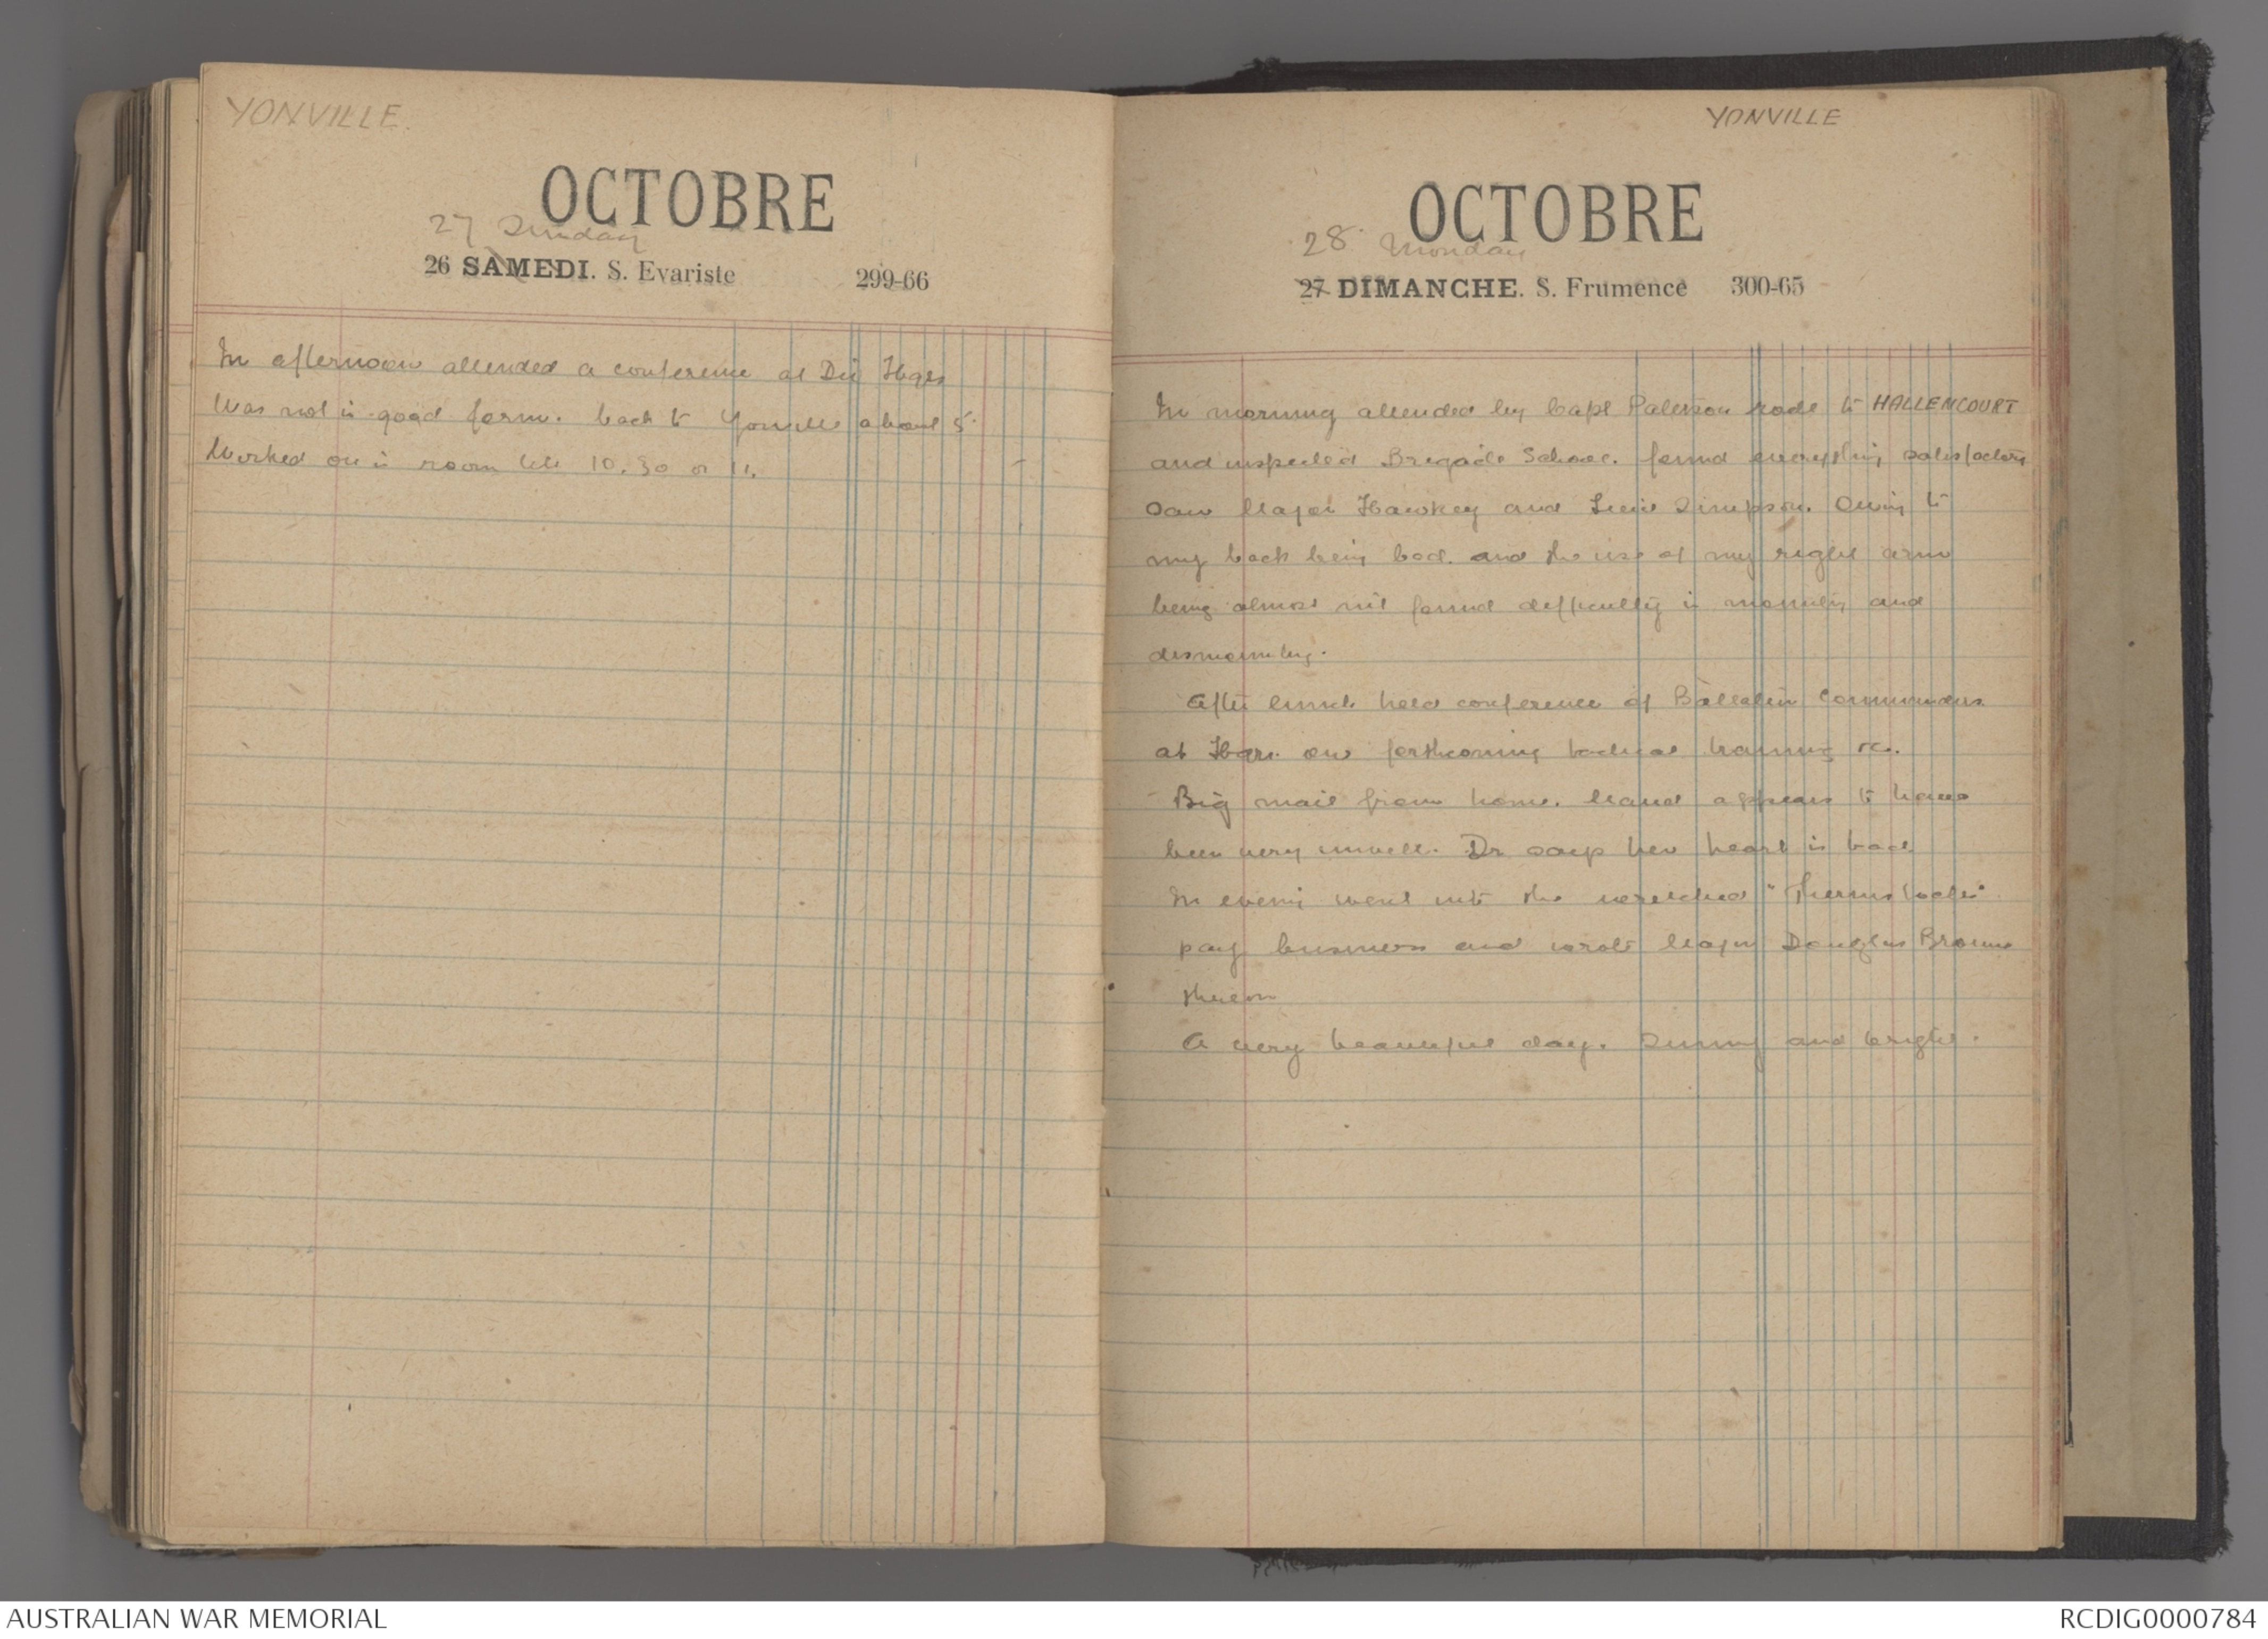 YONVILLE.
OCTOBRE
27 Sunday
26 SAMEDI. S. Evariste 299-66
In afternoon attended a conference at Div Hqrs
Was not in good form. back to Yonville about 5.
Worked on in room till 10.30 or 11.
YONVILLE
OCTOBRE
28. Monday
27 DIMANCHE. S. Frumence 300-65
In morning attended by Capt Paterson rode to HALLENCOURT
and inspected Brigade School. found everything satisfactory
Saw Major Hawkey and Lieut Simpson. Owing to
my back being bad. and the use of my right arm
being almost nil found difficulty in mounting and
dismounting.
After lunch held conference of Battalion Commanders
at Hqrs. on forthcoming tactical training &c.
Big mail from home. Maud appears to have
been very unwell. Dr says her heart is bad.
In evening went into the wretched "
pay business and wrote Major Douglas Browne
thereon
A very beautiful day. Sunny and bright.
AUSTRALIAN WAR MEMORIAL
RCDIG0000784